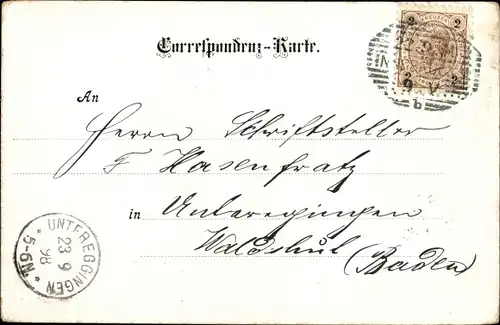 Correspondenz-Karte.
2 KREUZER 2
2 2
b
An
Herrn Schriftsteller
F Hasenfratz
in Untereggingen
Waldshut
(Baden)
UNTEREGGINGEN
23 9
98
* 5-6N *